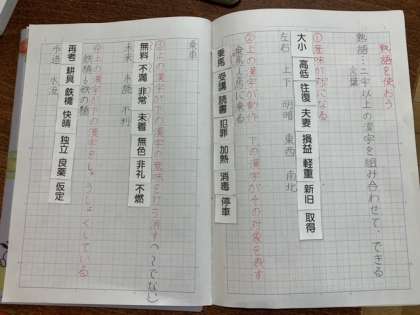 熟語を使おう
熟語…二字以上の漢字を組み合わせて、できる
言葉
①意味が対になる
大小 高低 往復 夫妻 損益 軽重 新旧 取得
左右 上下 明暗 東西 南北
②上の漢字が動作、下の漢字がその対象を表す
乗馬…馬に乗る
乗馬 受講 読書 犯罪 加熱 消毒 停車
乗車
③上の漢字が下の漢字の意味を打ち消す(〜でない)
無料 不満 非常 未着 無色 非礼 不燃
未来 未読 不利
④上の漢字が下の漢字をしゅうしょくしている
鉄橋…鉄の橋
再考 耕具 鉄橋 快晴 独立 良薬 仮定
水流